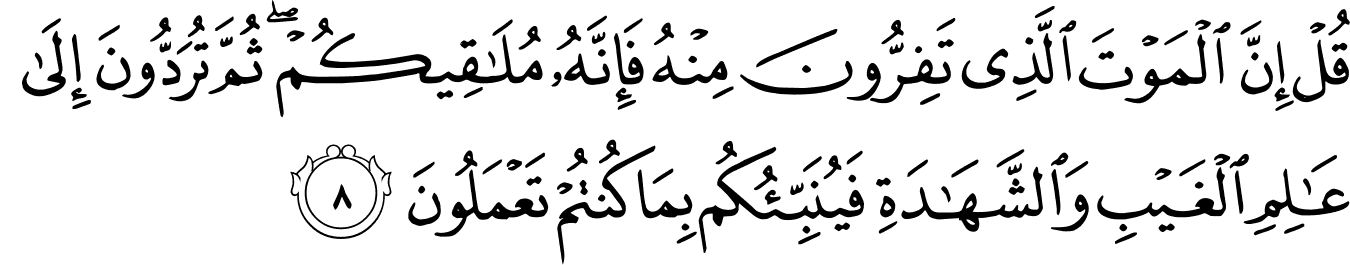 قُلْ إِنَّ ٱلْمَوْتَ ٱلَّذِى تَفِرُّونَ مِنْهُ فَإِنَّهُۥ مُلَـٰقِيكُمْ ۖ ثُمَّ تُرَدُّونَ إِلَىٰ
عَـٰلِمِ ٱلْغَيْبِ وَٱلشَّهَـٰدَةِ فَيُنَبِّئُكُم بِمَا كُنتُمْ تَعْمَلُونَ ٨